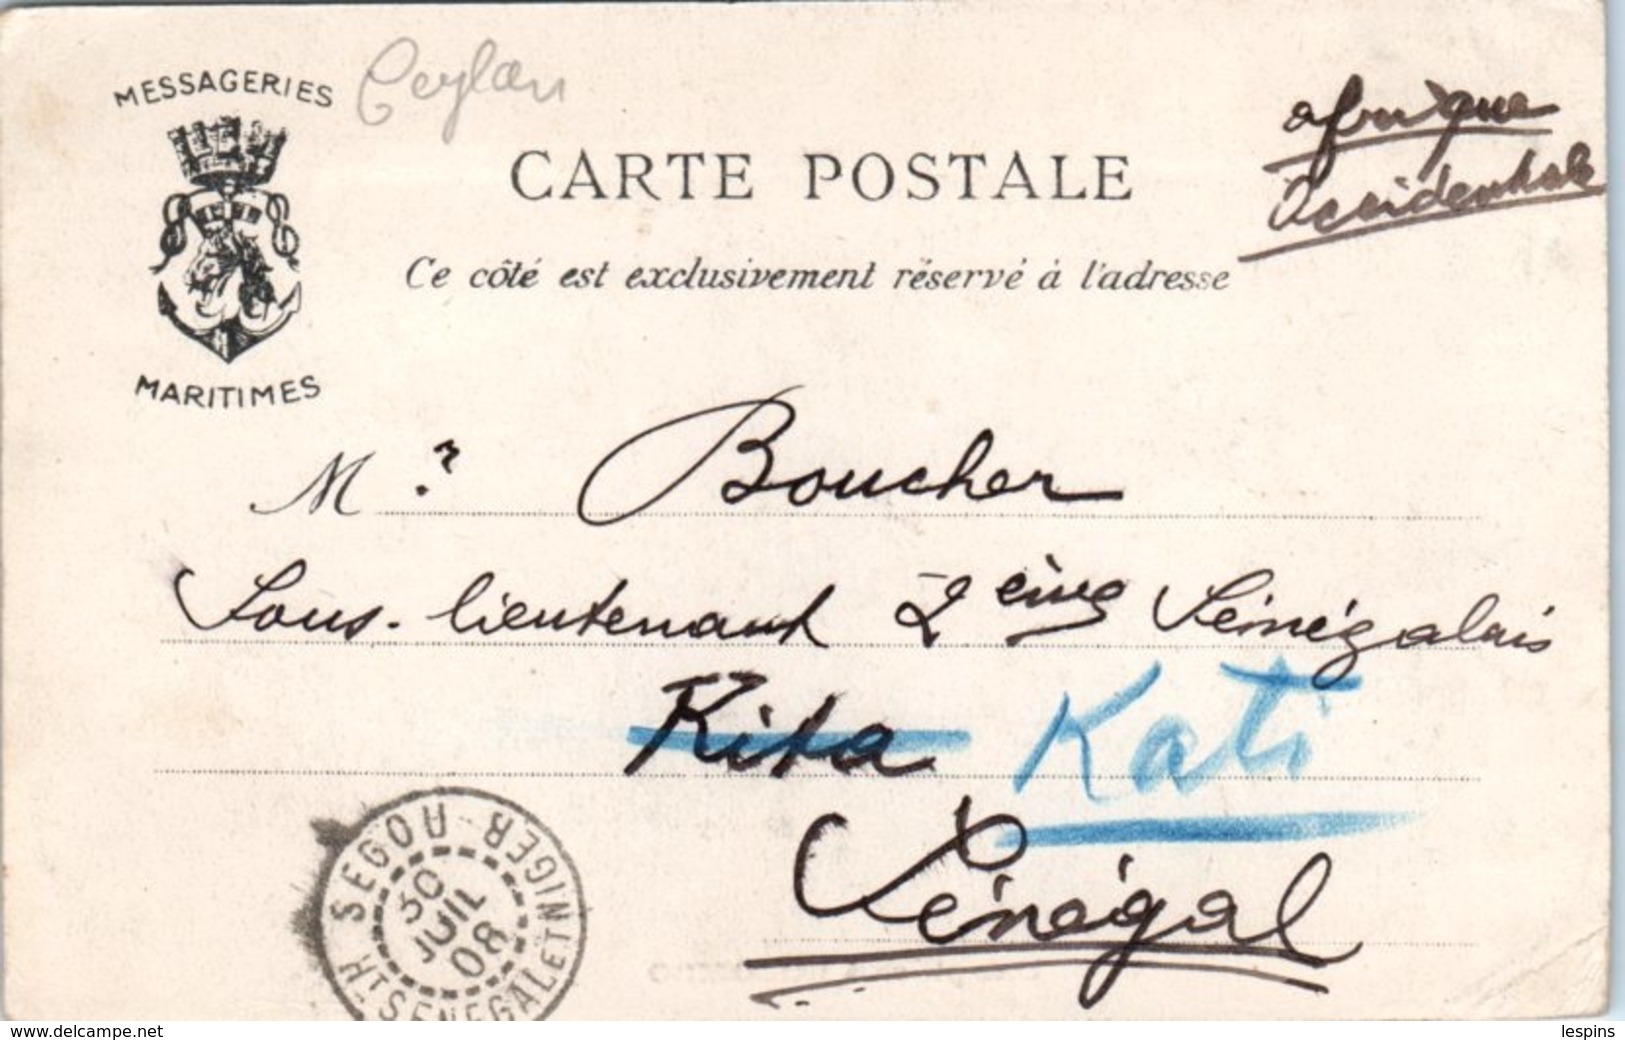 MESSAGERIES
MARITIMES
Ceylan
CARTE POSTALE
Afrique
Occidentale
Ce côté est exclusivement réservé à l'adresse
M r Boucher
Sous-lieutenant 2ème Sénégalais
Kita Kati
Sénégal
SEGOU
HT SENEGAL ET NIGER
30
JUIL
08
www.delcampe.net
lespins